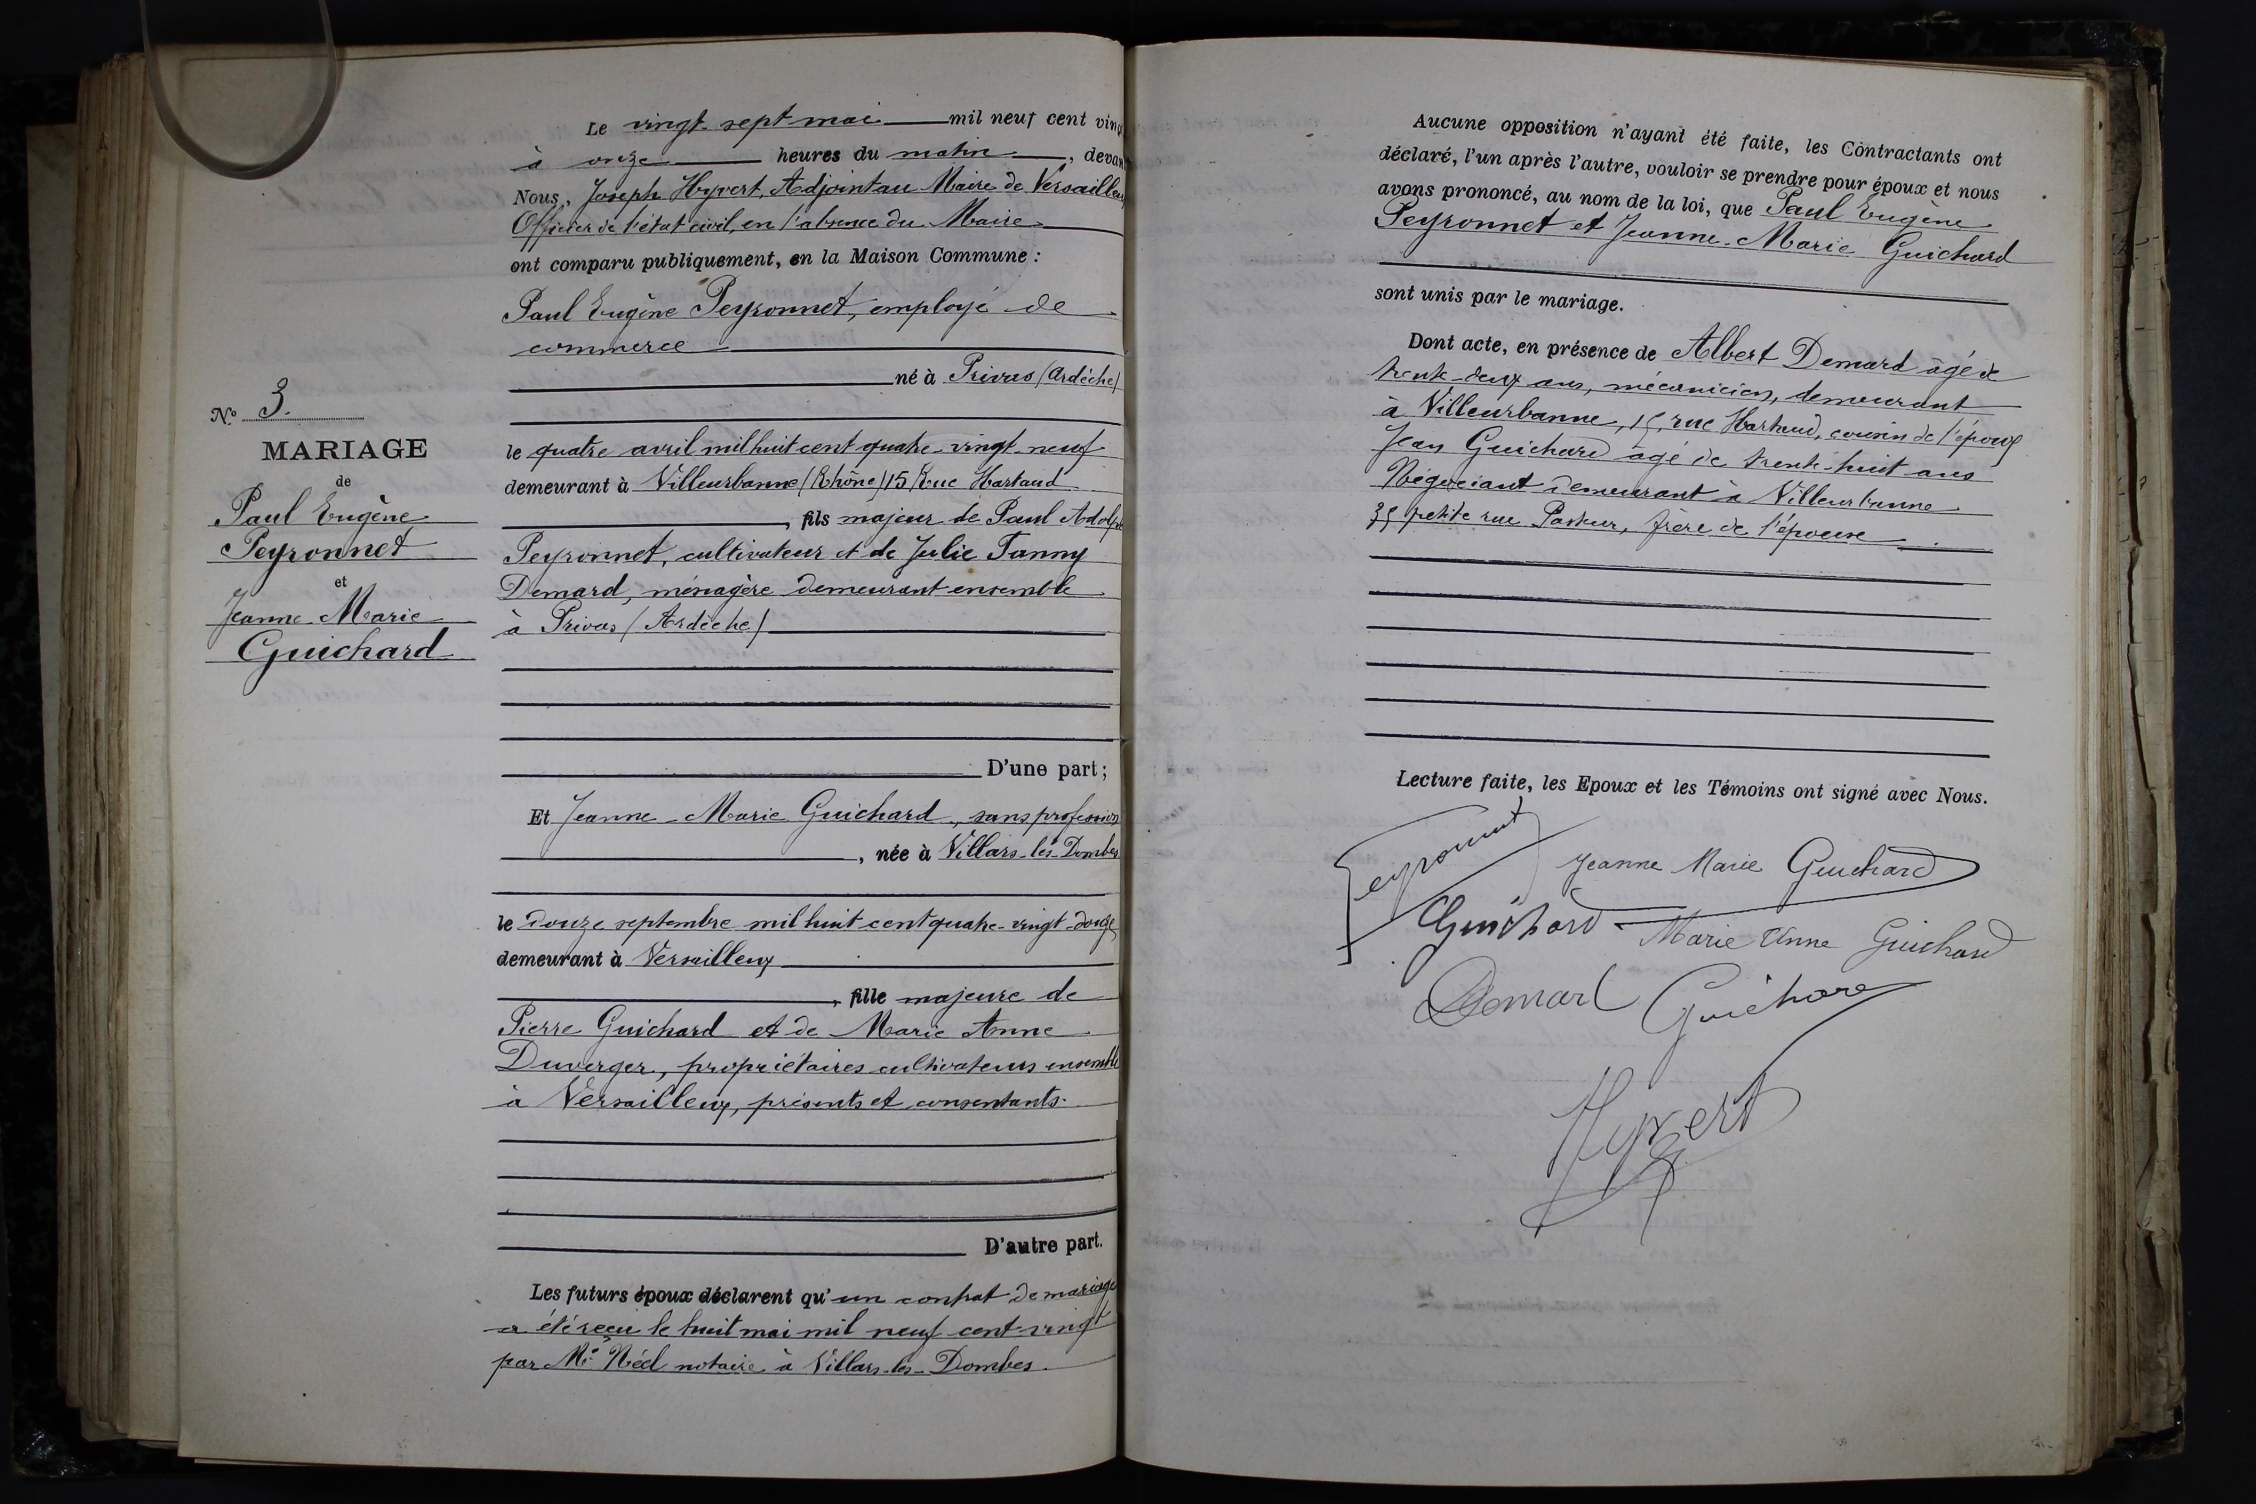 Le vingt sept mai mil neuf cent ving
à onze heures du matin, devan
Nous, Joseph Hyvert, Adjoint au Maire de Versailleux
Officier de l'état civil, en l'absence du Maire
ont comparu publiquement, en la Maison Commune :
Paul Eugène Peyronnet, employé de
commerce
né à Privas (Ardèche)
le quatre avril mil huit cent quatre-vingt-neuf
demeurant à Villeurbanne (Rhône) 15 Rue Hartaud
, fils majeur de Paul Adolphe
Peyronnet, cultivateur et de Julie Fanny
Demard, ménagère demeurant ensemble
à Privas (Ardèche)
D'une part ;
Et Jeanne-Marie Guichard, sans profession
, née à Villars-les-Dombes
le douze septembre mil huit cent quatre-vingt-douze
demeurant à Versailleux
, fille majeure de
Pierre Guichard et de Marie Anne
Duverger, propriétaires cultivateurs ensemble
à Versailleux, présents et consentants.
D'autre part.
Les futurs époux déclarent qu'un contrat de mariage
a été reçu le huit mai mil neuf cent-vingt
par Me Néel notaire à Villars-les-Dombes.
No 3.
MARIAGE
de
Paul Eugène
Peyronnet
et
Jeanne-Marie
Guichard
Aucune opposition n'ayant été faite, les Contractants ont
déclaré, l'un après l'autre, vouloir se prendre pour époux et nous
avons prononcé, au nom de la loi, que Paul Eugène
Peyronnet et Jeanne-Marie Guichard
sont unis par le mariage.
Dont acte, en présence de Albert Demard âgé de
trente-deux ans, mécanicien, demeurant
à Villeurbanne, 15, rue Hartaud, cousin de l'époux
Jean Guichard âgé de trente-huit ans
Négociant demeurant à Villeurbanne
35 petite rue Pasteur, frère de l'épouse
Lecture faite, les Epoux et les Témoins ont signé avec Nous.
Peyronnet
Jeanne Marie Guichard
Guichard
Marie Anne Guichard
Demard
Guichard
Hyvert